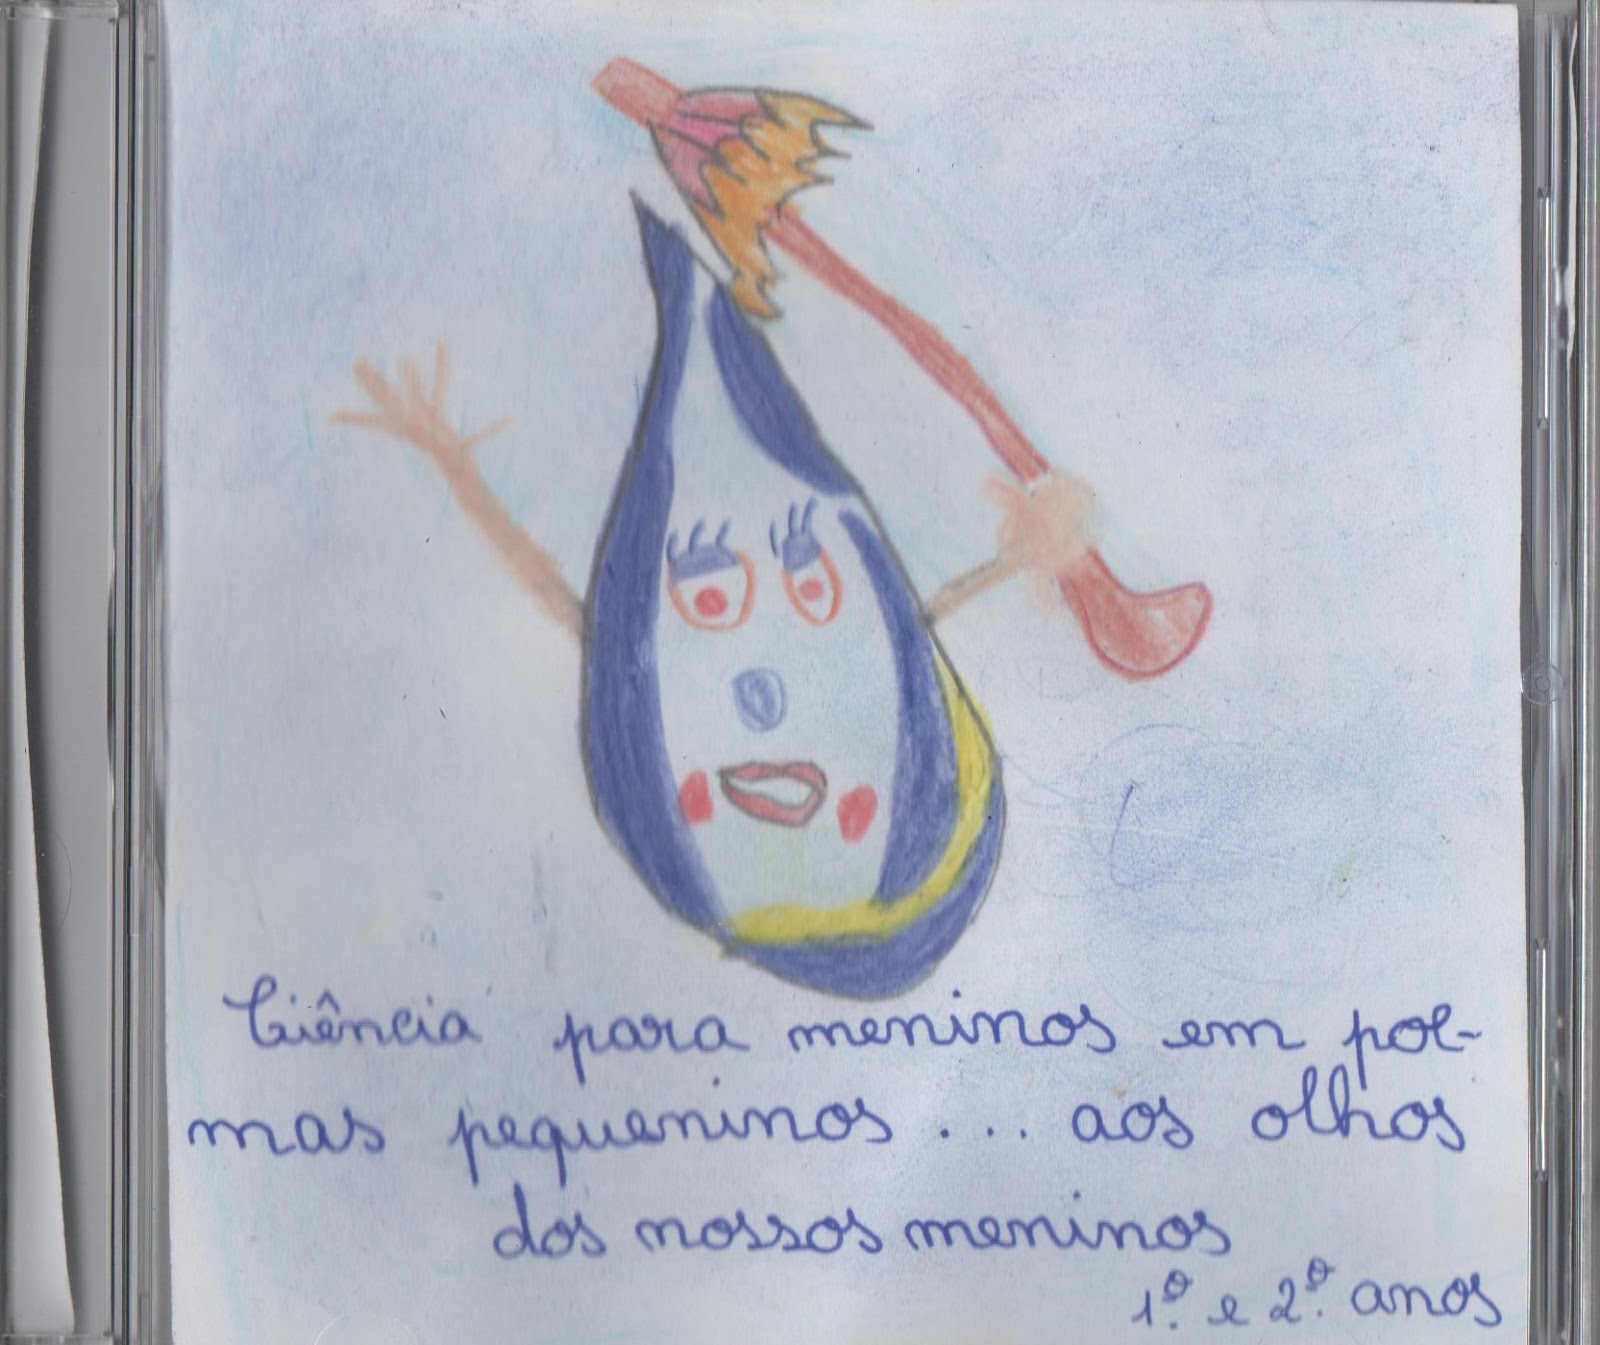 Ciência para meninos em poe-
mas pequeninos... aos olhos
dos nossos meninos
1.º e 2.º anos